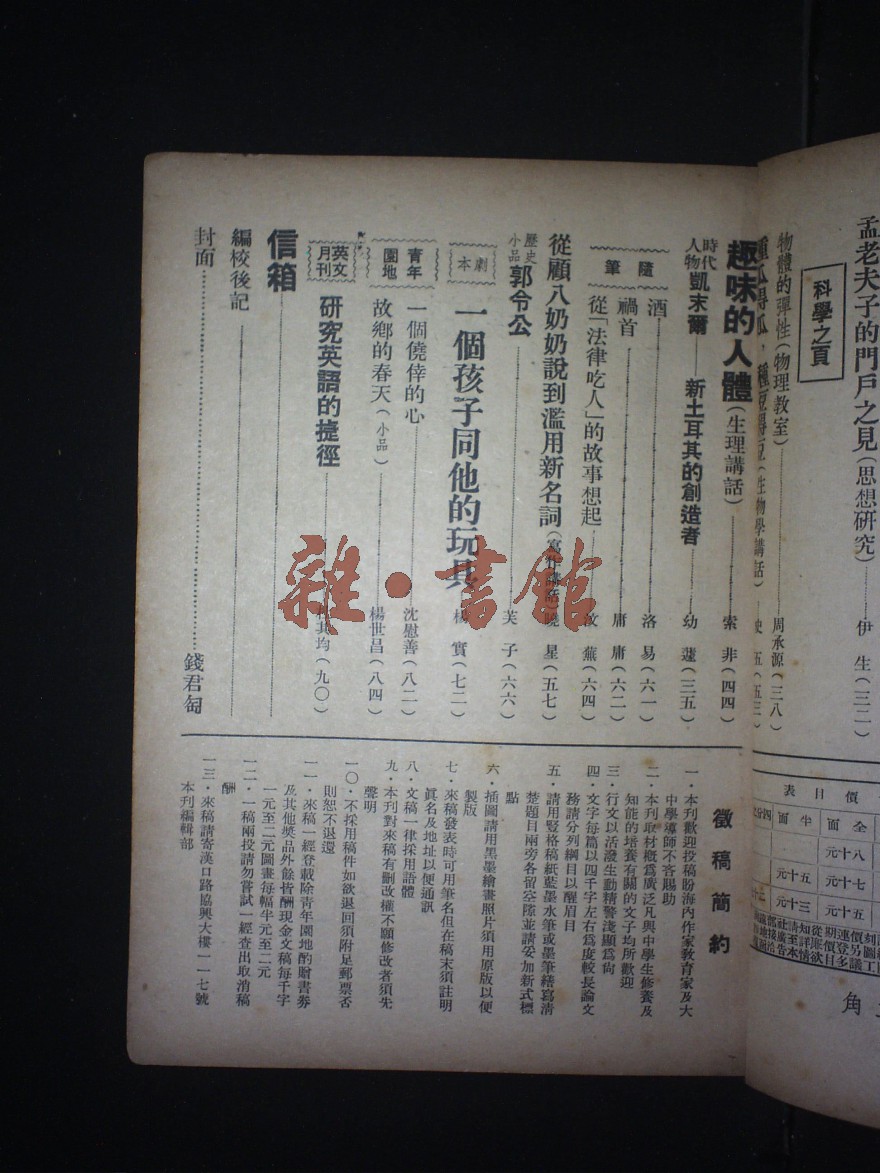 孟老夫子的門戶之見(思想研究)
伊生(三二)
科學之頁
物體的彈性(物理教室)
周承源(三八)
種瓜得瓜,種豆得豆(生物學講話)
史五(五三)
趣味的人體(生理講話)
索非(四四)
時代人物
凱末爾——新土耳其的創造者
幼蓮(三五)
隨筆
酒
洛易(六一)
禍首
庸庸(六二)
從「法律吃人」的故事想起
汶蕪(六四)
從顧八奶奶說到濫用新名詞(寫作講話)
曉星(五七)
歷史小品
郭令公
芙子(六六)
劇本
一個孩子同他的玩具
楊實(七二)
青年園地
一個僥倖的心
沈慰善(八二)
故鄉的春天(小品)
楊世昌(八四)
英文月刊
研究英語的捷徑
其均(九〇)
信箱
編校後記
封面
錢君匋
徵稿簡約
一・本刊歡迎投稿盼海內作家教育家及大
中學導師不吝賜助
二・本刊取材概爲廣泛凡與中學生修養及
知能的培養有關的文子均所歡迎
三・行文以活潑生動精警淺顯爲尙
四・文字每篇以四千字左右爲度較長論文
務請分列綱目以醒眉目
五・請用豎格稿紙藍墨水筆或墨筆繕寫清
楚題目兩旁各留空隙並請妥加新式標
點
六・插圖請用黑墨繪畫照片須用原版以便
製版
七・來稿發表時可用筆名但在稿末須註明
眞名及地址以便通訊
八・文稿一律採用語體
九・本刊對來稿有刪改權不願修改者須先
聲明
一〇・不採用稿件如欲退回須附足郵票否
則恕不退還
一一・來稿一經登載除青年園地酌贈書券
及其他奬品外餘皆酬現金文稿每千字
一元至二元圖畫每幅半元至二元
一二・一稿兩投請勿嘗試一經查出取消稿
酬
一三・來稿請寄漢口路協興大樓一一七號
本刊編輯部
價目表
全面
半面
八十元
七十元
五十元
五十元
三十元
角
雜・書館